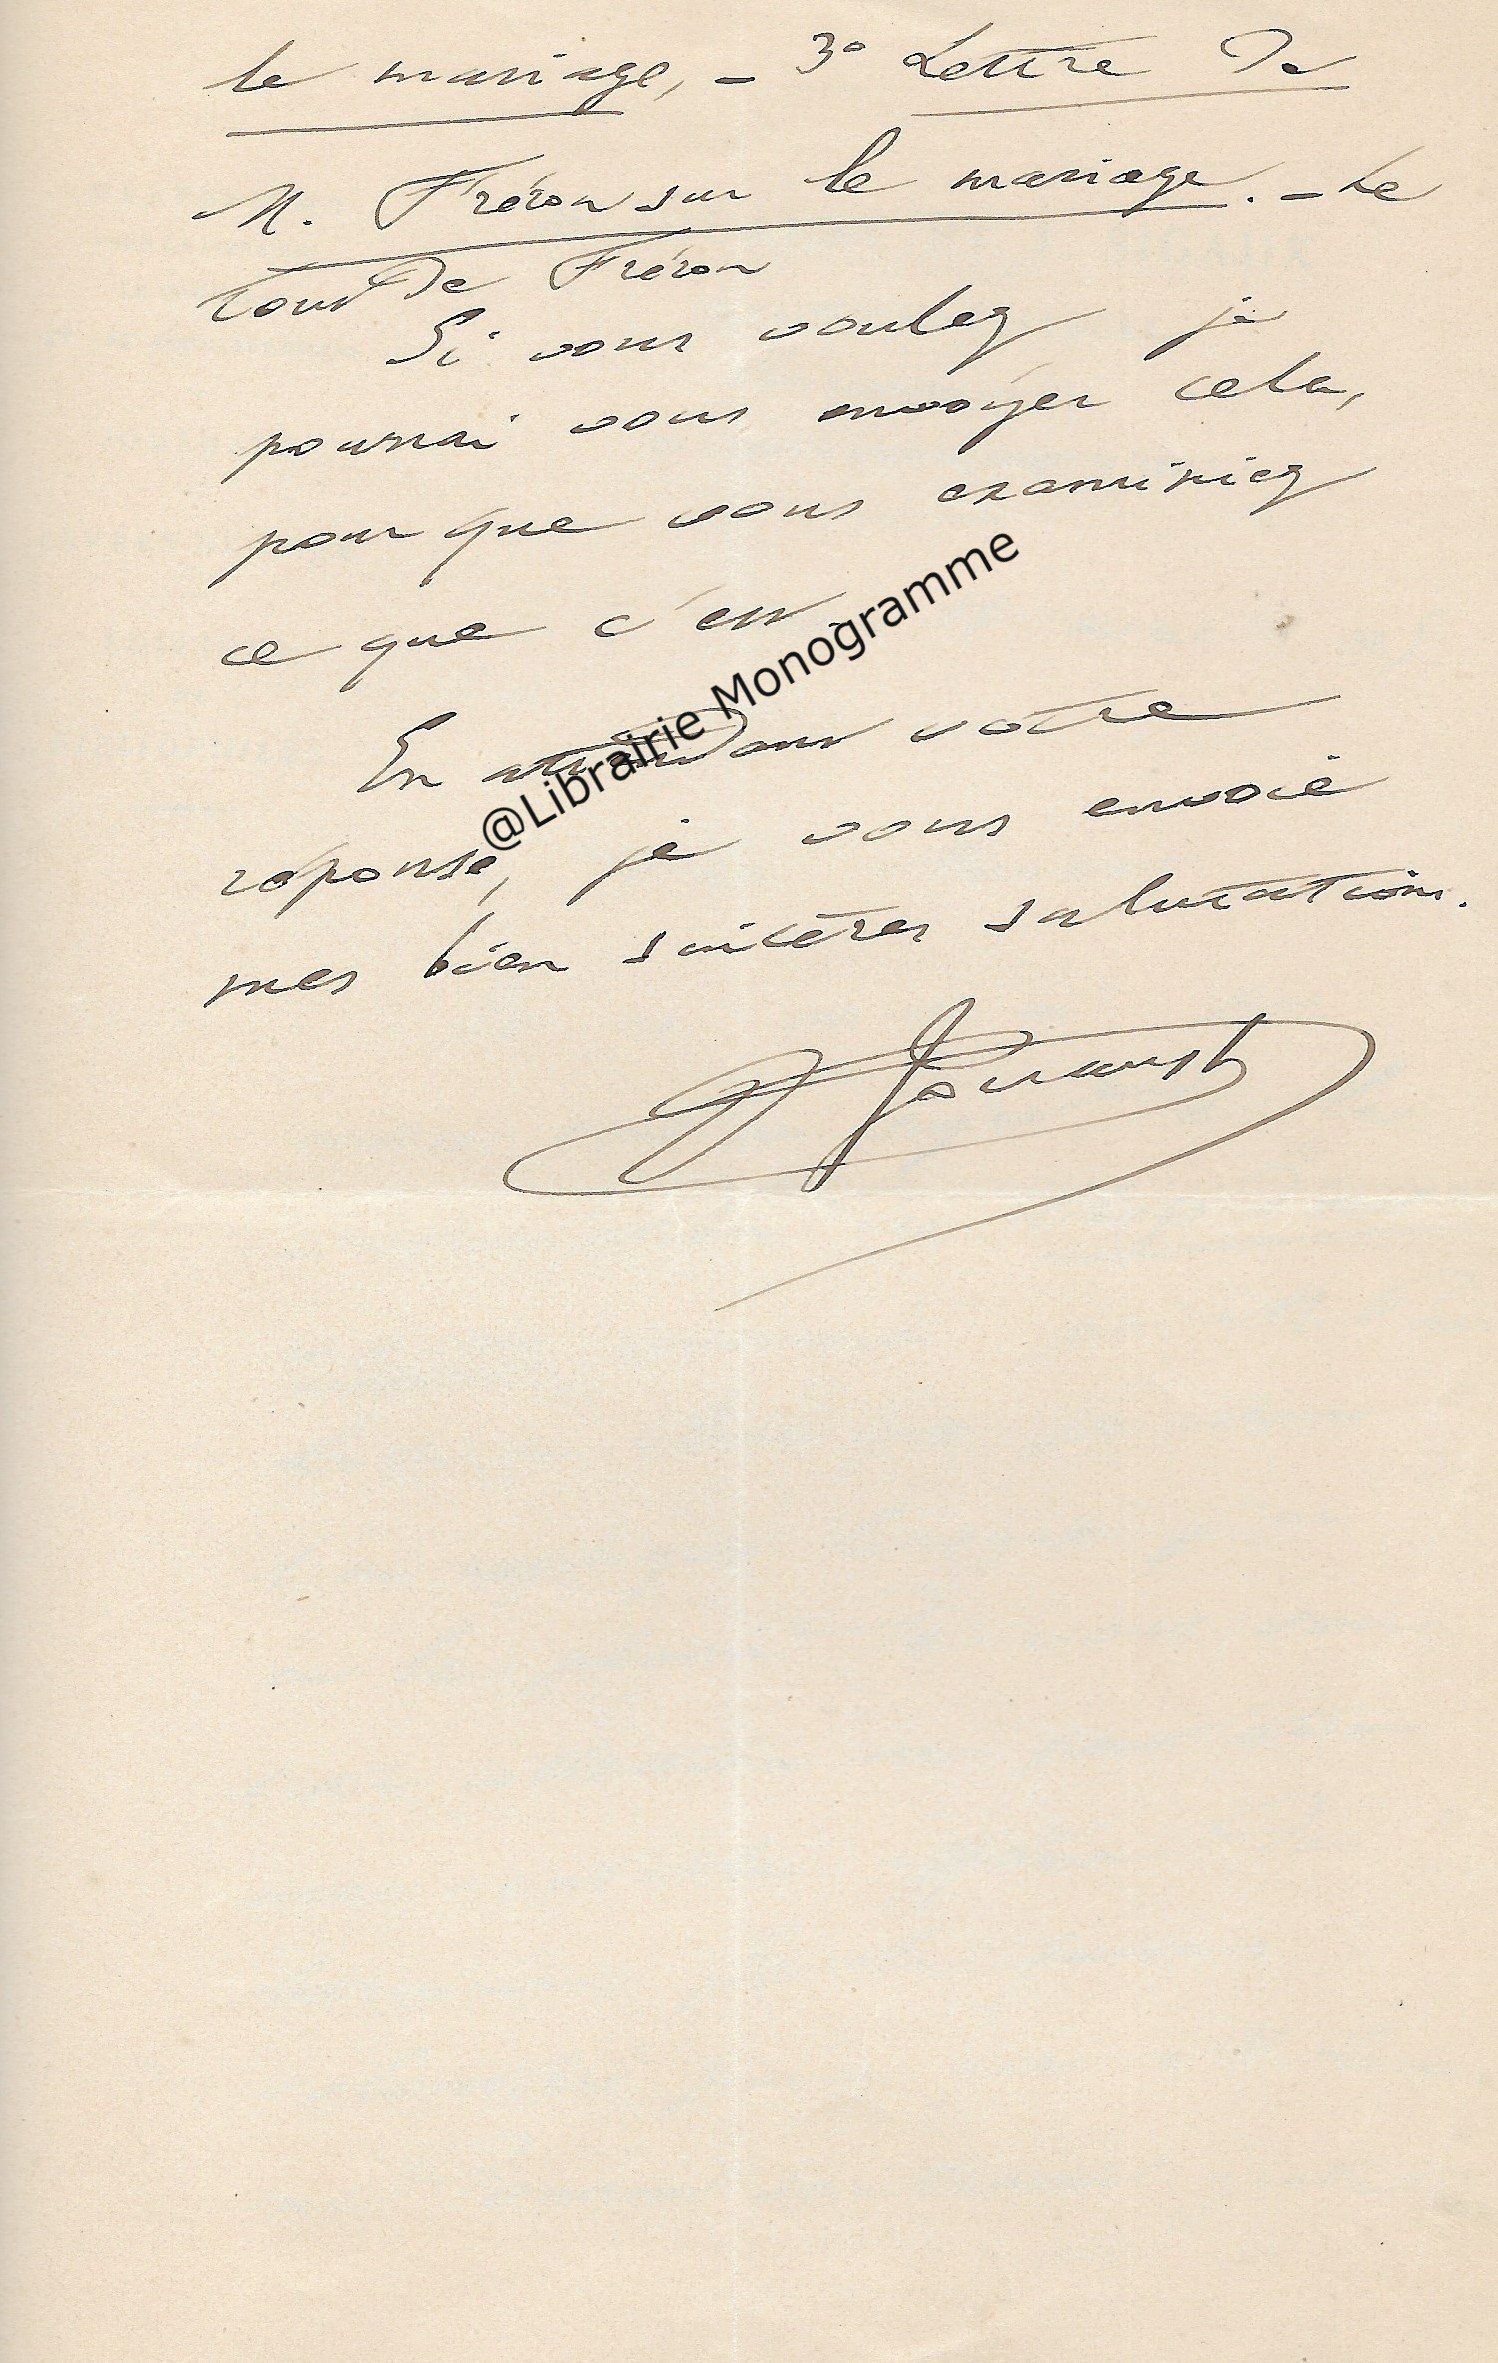 le mariage, – 3° Lettre de
M. Fréron sur le mariage. – Le
tout de Fréron
Si vous voulez je
pourrai vous envoyer cela,
pour que vous examiniez
ce que c'est
En attendant votre
réponse, je vous envoie
mes bien sincères salutations.
@Librairie Monogramme